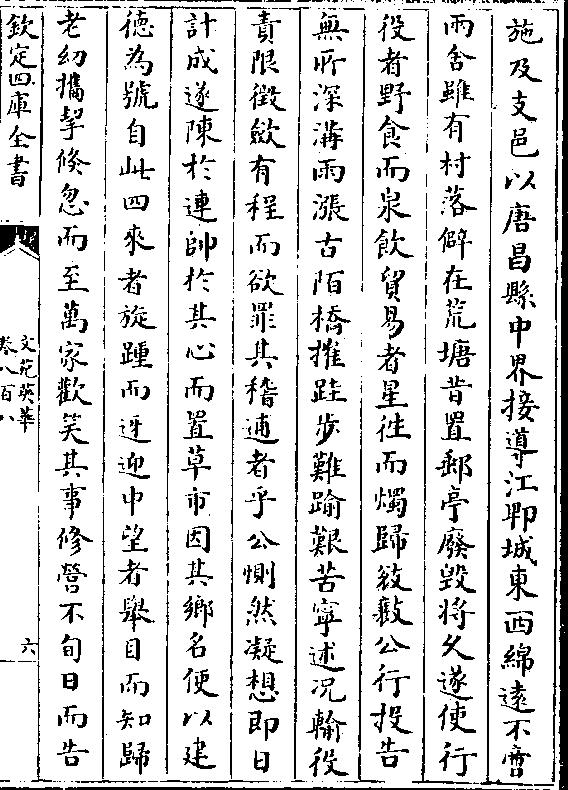 施及支邑以唐昌縣中界接導江郫城東西綿遠不啻
兩舍雖有村落僻在荒塘昔置郵亭廢毀將久遂使行
役者野食而泉飲貿易者星徃而燭歸敓㩁公行投告
無所深溝雨漲古陌橋摧跬歩難踰艱苦寧述况輸役
責限徴斂有程而欲罪其稽逋者乎公惻然凝想即日
計成遂陳於連帥於其心而置草市因其鄉名便以建
徳為號自此四來者旋踵而迓迎中望者舉目而知歸
老幼攜挈倐忽而至萬家歡笑其事修營不旬日而告
欽定四庫全書
文苑英華
卷八百八
六